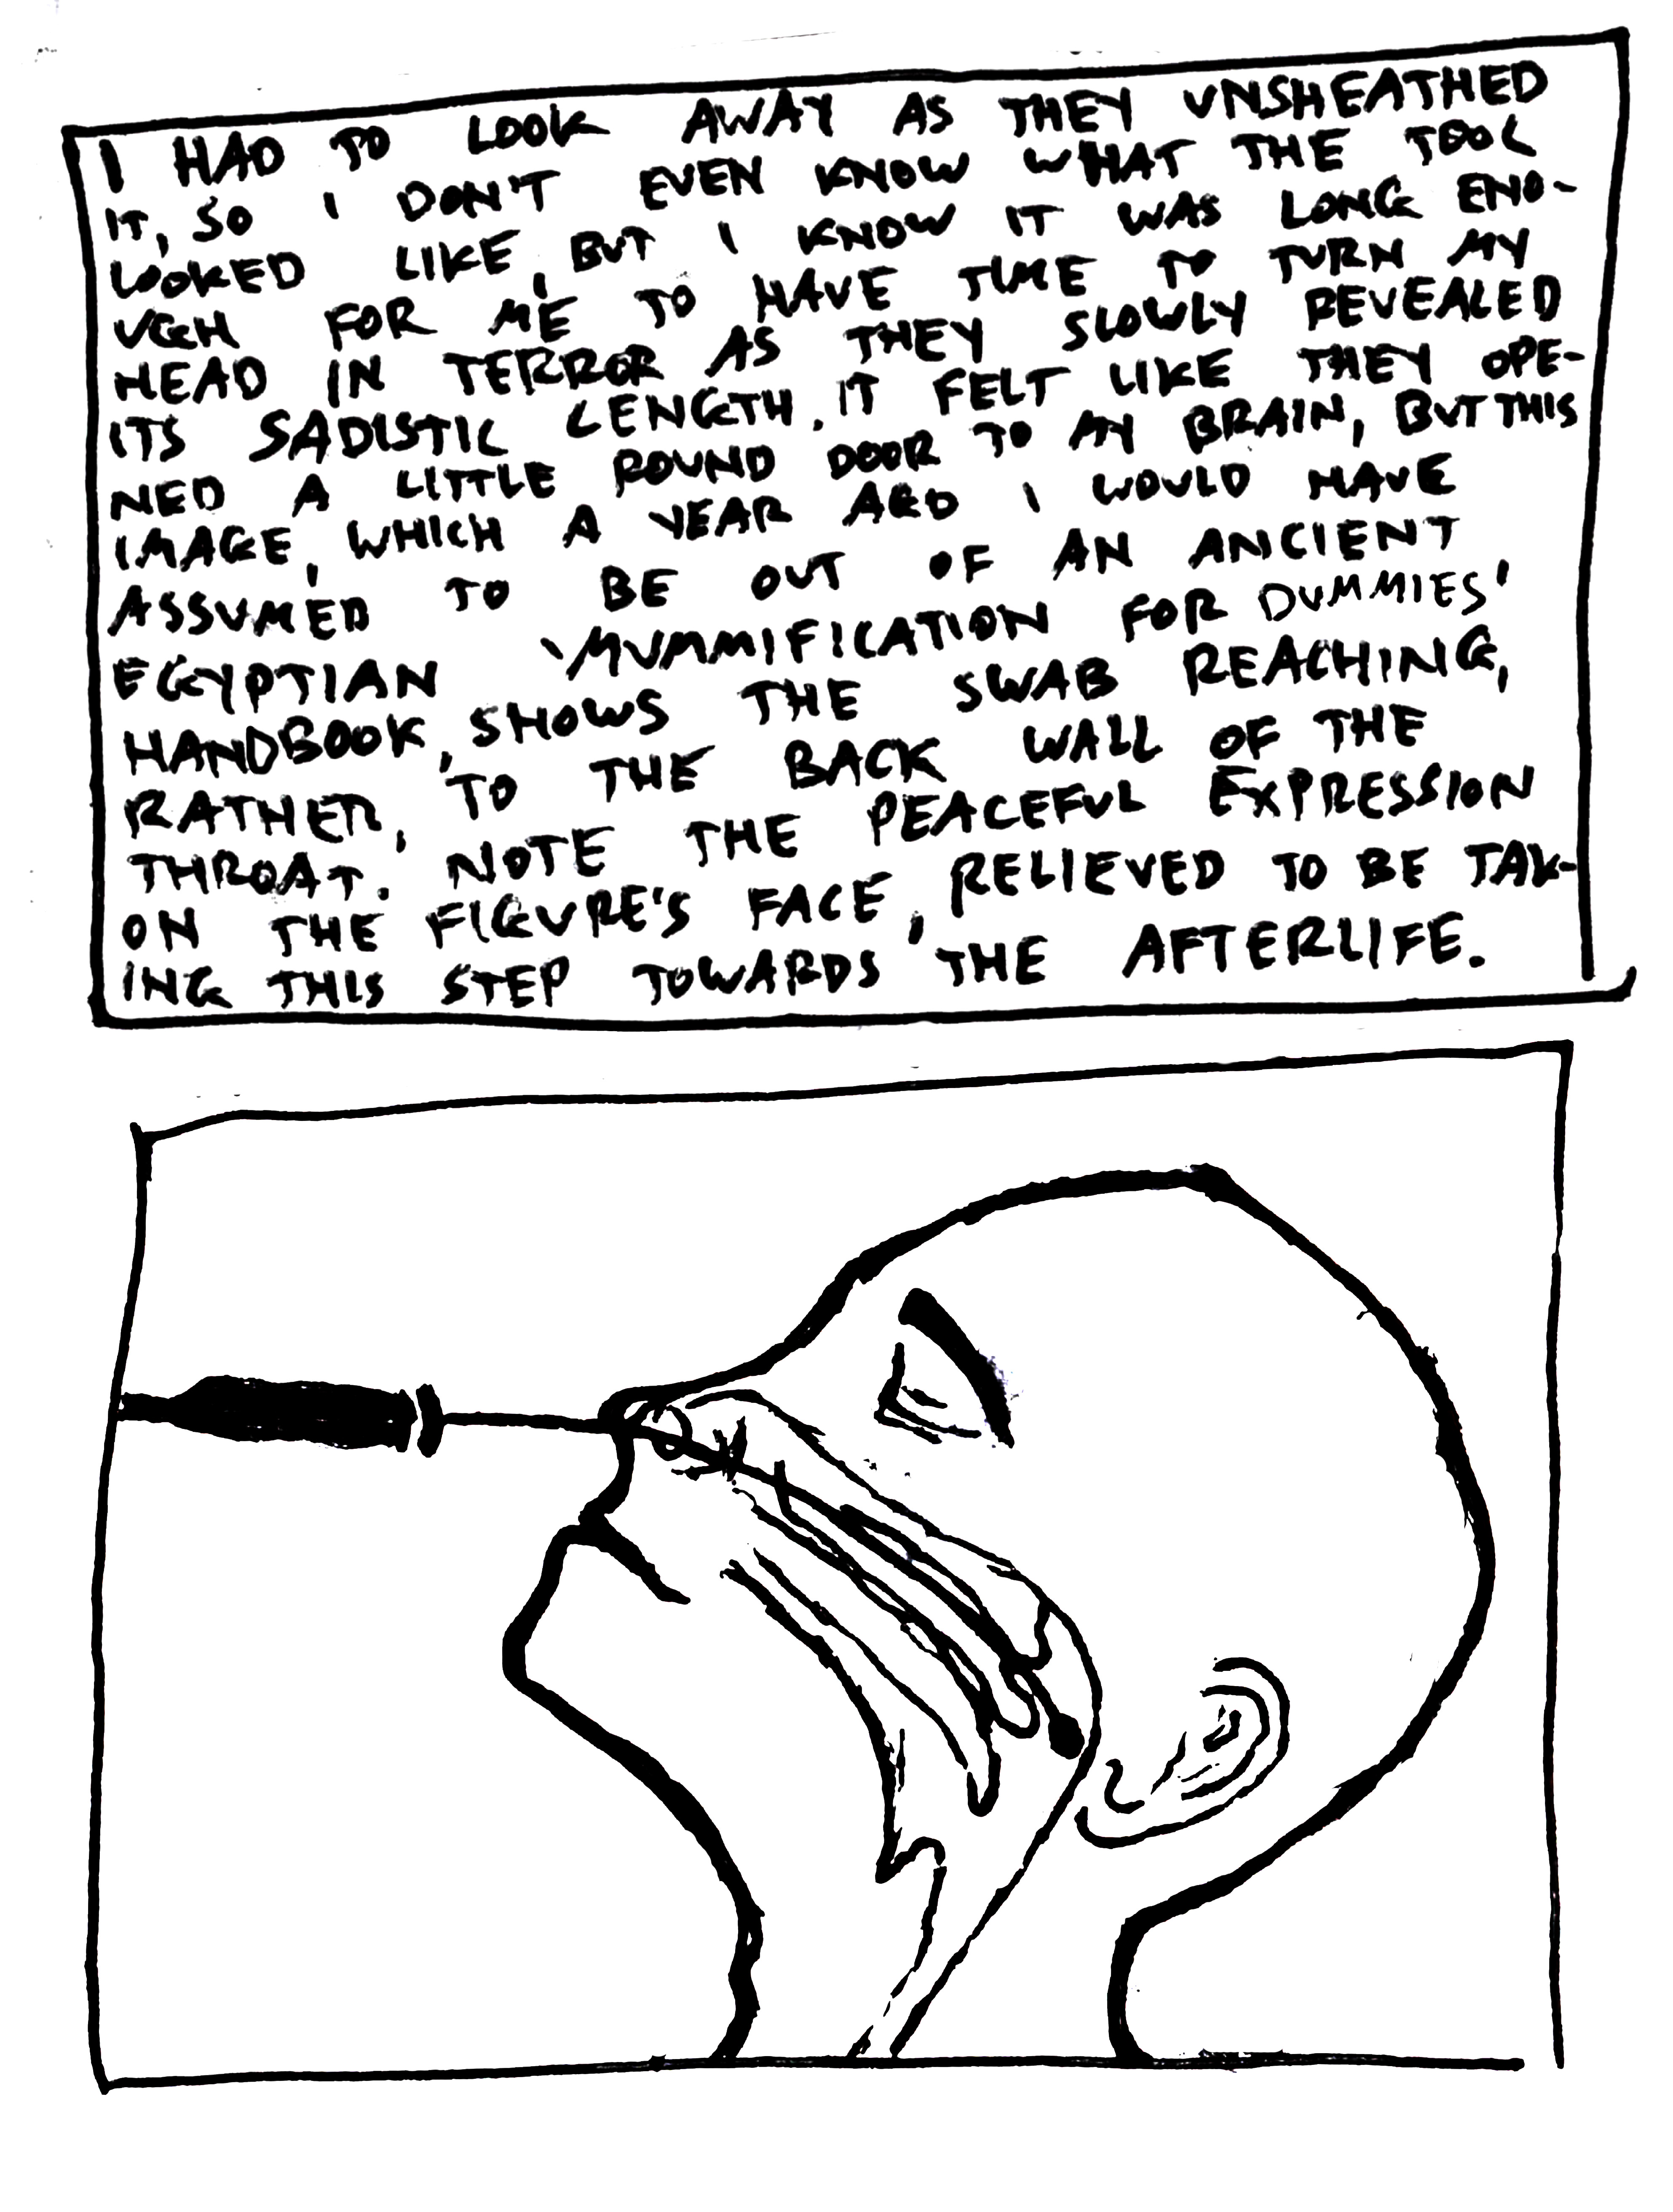 I HAD TO LOOK AWAY AS THEY UNSHEATHED
IT, SO I DON'T EVEN KNOW WHAT THE TOOL
LOOKED LIKE, BUT I KNOW IT WAS LONG ENO-
UGH FOR ME TO HAVE TIME TO TURN MY
HEAD IN TERROR AS THEY SLOWLY REVEALED
ITS SADISTIC LENGTH. IT FELT LIKE THEY OPE-
NED A LITTLE ROUND DOOR TO MY BRAIN, BUT THIS
IMAGE, WHICH A YEAR AGO I WOULD HAVE
ASSUMED TO BE OUT OF AN ANCIENT
EGYPTIAN 'MUMMIFICATION FOR DUMMIES'
HANDBOOK, SHOWS THE SWAB REACHING,
RATHER, TO THE BACK WALL OF THE
THROAT. NOTE THE PEACEFUL EXPRESSION
ON THE FIGURE'S FACE, RELIEVED TO BE TAK-
ING THIS STEP TOWARDS THE AFTERLIFE.